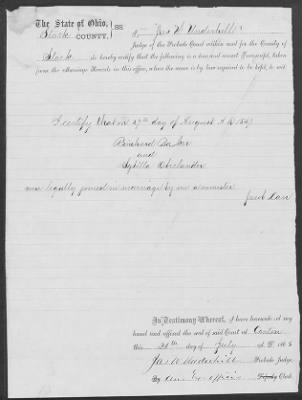 The State of Ohio, SS
Stark COUNTY.
I, Jas W. Underhill
Judge of the Probate Court within and for the County of
Stark do hereby certify that the following is a true and correct Transcript, taken
from the Marriage Records in this office, where the same is by law required to be kept, to wit
I certify that on 27th day of August A.D. 1847
and
Sybilla Oberlander
were legally joined in marriage by me a minister
Jacob
In Testimony Whereof, I have hereunto set my
hand and affixed the seal of said Court at Canton
this 24th day of July A.D. 188
Jas W Underhill Probate Judge,
By and Ex-officio Deputy Clerk.